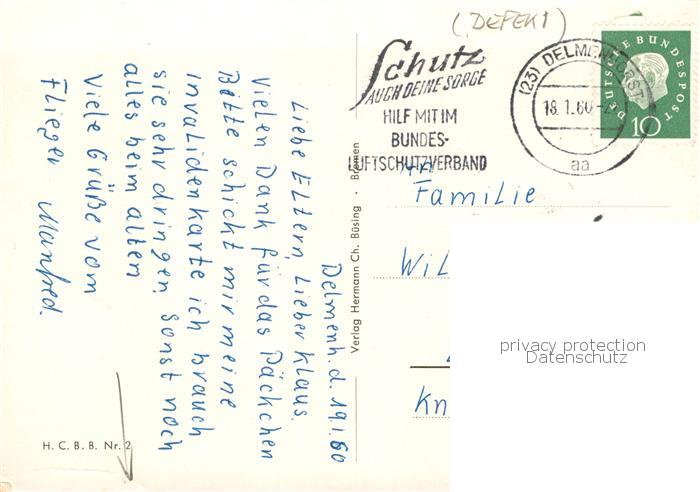 (DEFEKT)
Schutz
AUCH DEINE SORGE
HILF MIT IM
BUNDES-
LUFTSCHUTZVERBAND
(23) DELMENHORST
18.1.60-2
aa
DEUTSCHE BUNDESPOST
10
Delmenh. d. 19.1.60
Liebe Eltern, Lieber Klaus.
Vielen Dank für das Päckchen
Bitte schickt mir meine
Invalidenkarte ich brauch
sie sehr dringen, Sonst noch
alles beim alten
Viele Grüße vom
Flieger Manfred.
An
Familie
Wil
Kn
Verlag Hermann Ch. Büsing · Bremen
H. C. B. B. Nr. 2
privacy protection
Datenschutz